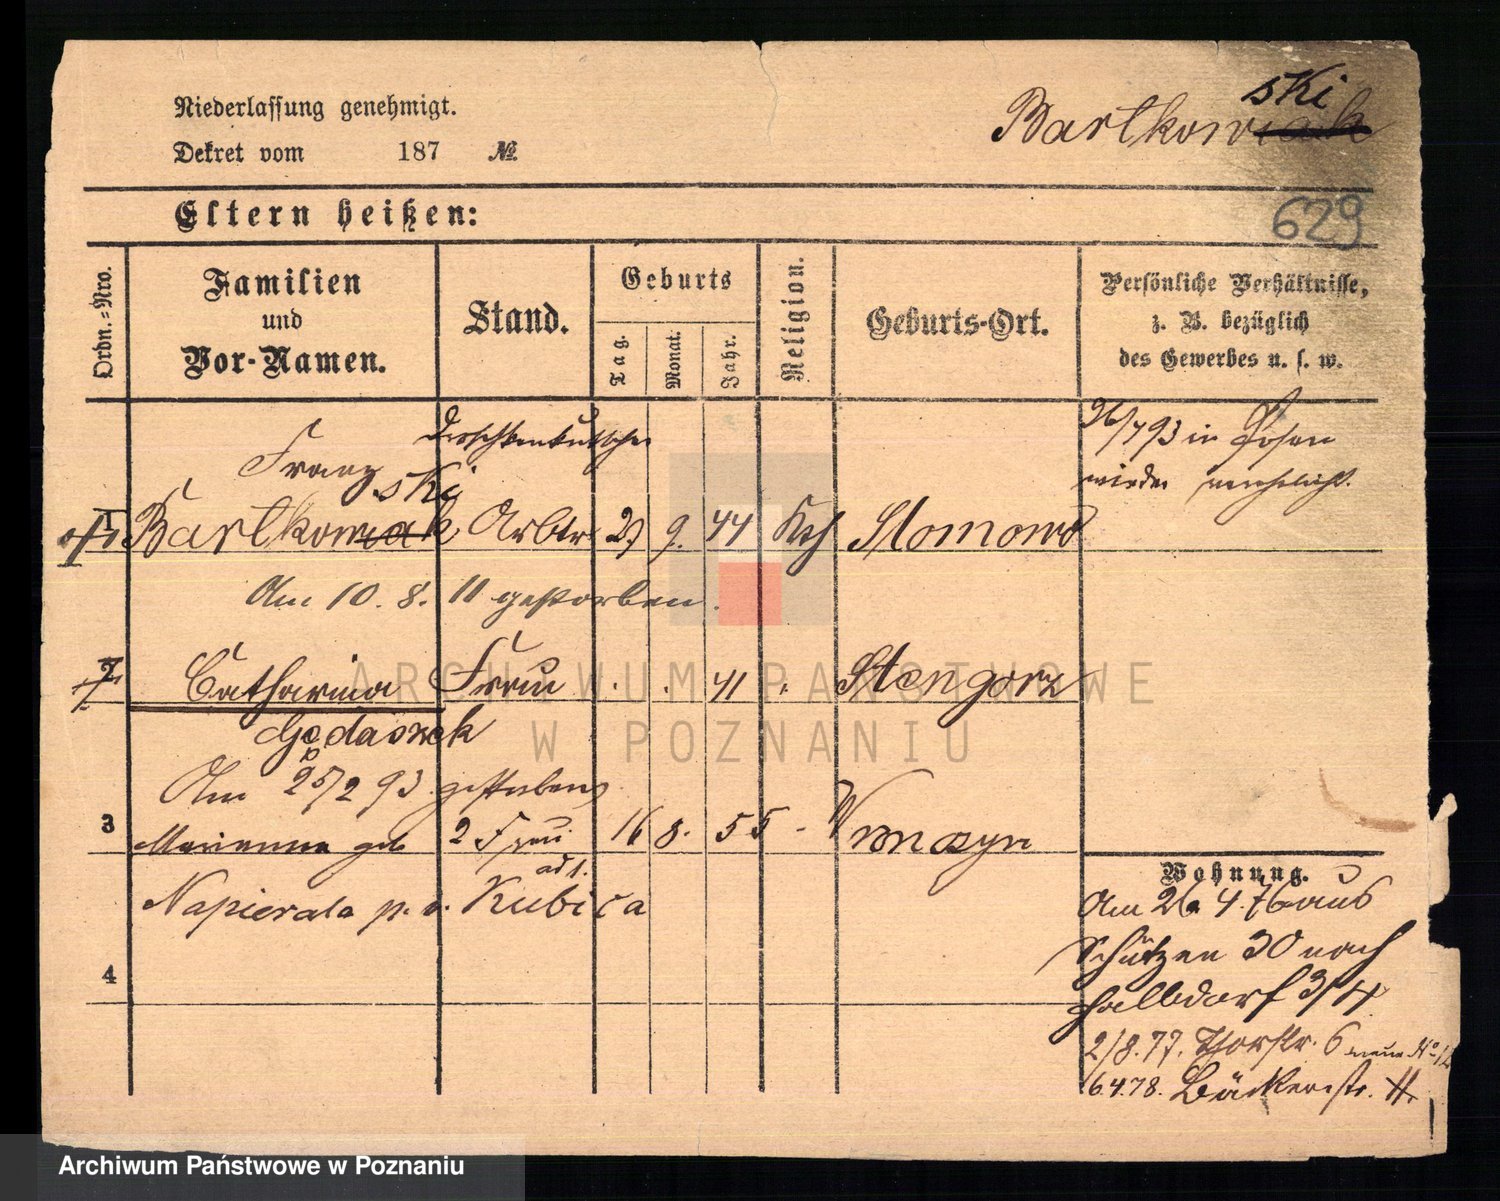 Niederlassung genehmigt.
Dekret vom 187 №
Bartkowiak ski
629
Eltern heißen:
Ordn.-Nro.
Familien
und
Vor-Namen.
Stand.
Geburts
Tag.
Monat.
Jahr.
Religion.
Geburts-Ort.
Persönliche Verhältnisse,
z. B. bezüglich
des Gewerbes u. s. w.
Droschkenkutscher
Franz
ski
1 Bartkowiak Arbtr 29 9. 44 Kth Slomowo
26/7 93 in Posen
wieder verehelicht.
Am 10. 8. 11 gestorben.
2 Catharina Frau . . 41 " Stengorz
Gędaszek
Am 25/2 93 gestorben
3 Marianna geb 2 Frau 16 8. 55 - Wronczyn
Napierala p. v. adt. Kubica
4
Wohnung.
Am 26. 4. 76 aus
Schützen 30 nach
Halbdorf 3/4
2/8. 77. Thorstr. 6 neue No 12
6.4.78. Bäckerstr. 11.
ARCHIWUM PAŃSTWOWE
W POZNANIU
Archiwum Państwowe w Poznaniu